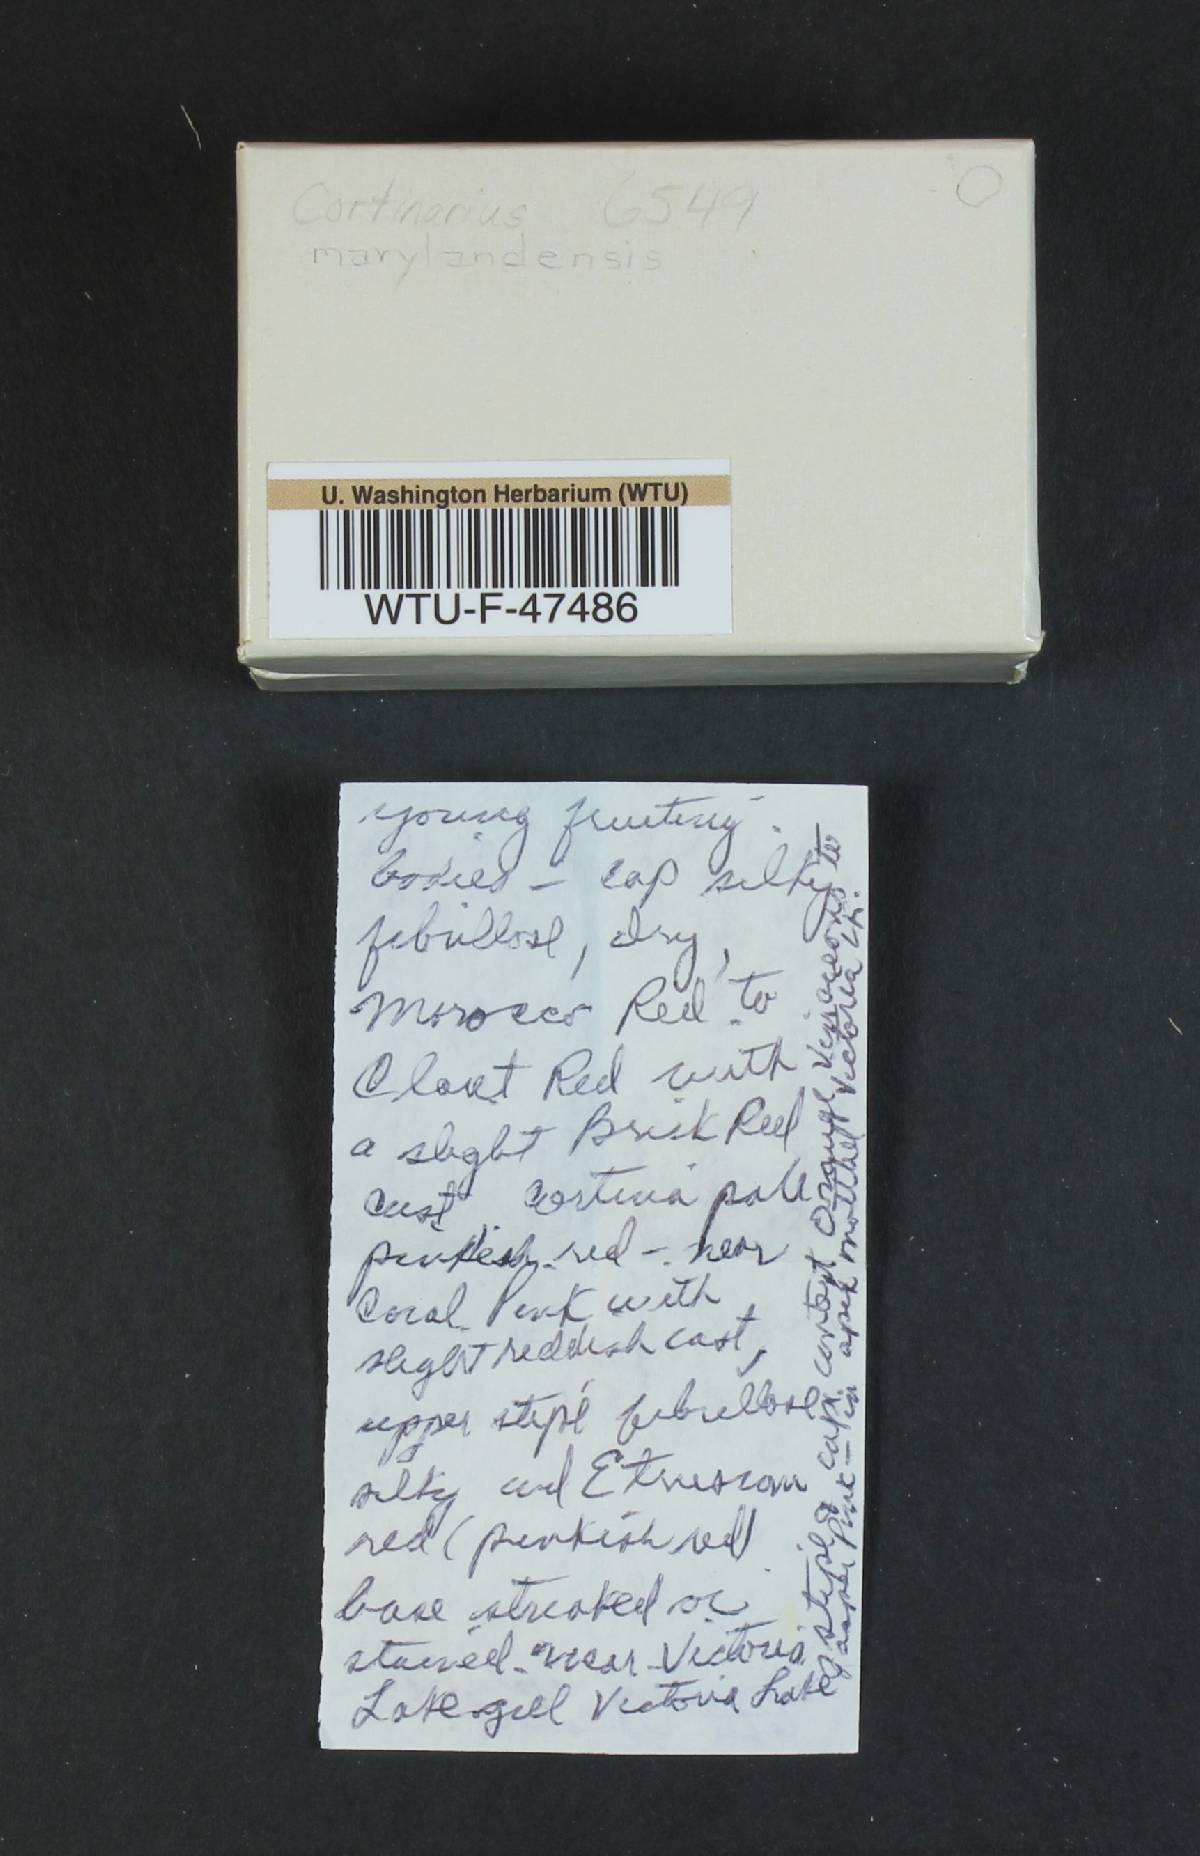 Cortinarius 6549
marylandensis
U. Washington Herbarium (WTU)
WTU-F-47486
young fruiting
bodies – cap silky
fibrillose, dry,
Morocco Red to
Claret Red with
a slight Brick Red
cast cortina pale
pinkish red – near
Coral Pink with
slight reddish cast,
upper stipe fibrillose
silky and Etruscan
red (pinkish red)
base streaked or
stained near Victoria
Lake gill Victoria Lake
stipe & cap context Orange Vinaceous to
Jasper Pink – in apex mottled Victoria Lk.